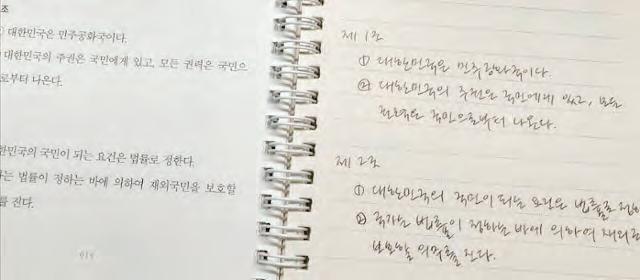 조
① 대한민국은 민주공화국이다.
대한민국의 주권은 국민에게 있고, 모든 권력은 국민으
로부터 나온다.
한민국의 국민이 되는 요건은 법률로 정한다.
는 법률이 정하는 바에 의하여 재외국민을 보호할
를 진다.
제 1조
① 대한민국은 민주공화국이다.
② 대한민국의 주권은 국민에게 있고, 모든
권력은 국민으로부터 나온다.
제 2조
① 대한민국의 국민이 되는 요건은 법률로 정한
② 국가는 법률이 정하는 바에 의하여 재외국
보호할 의무를 진다.